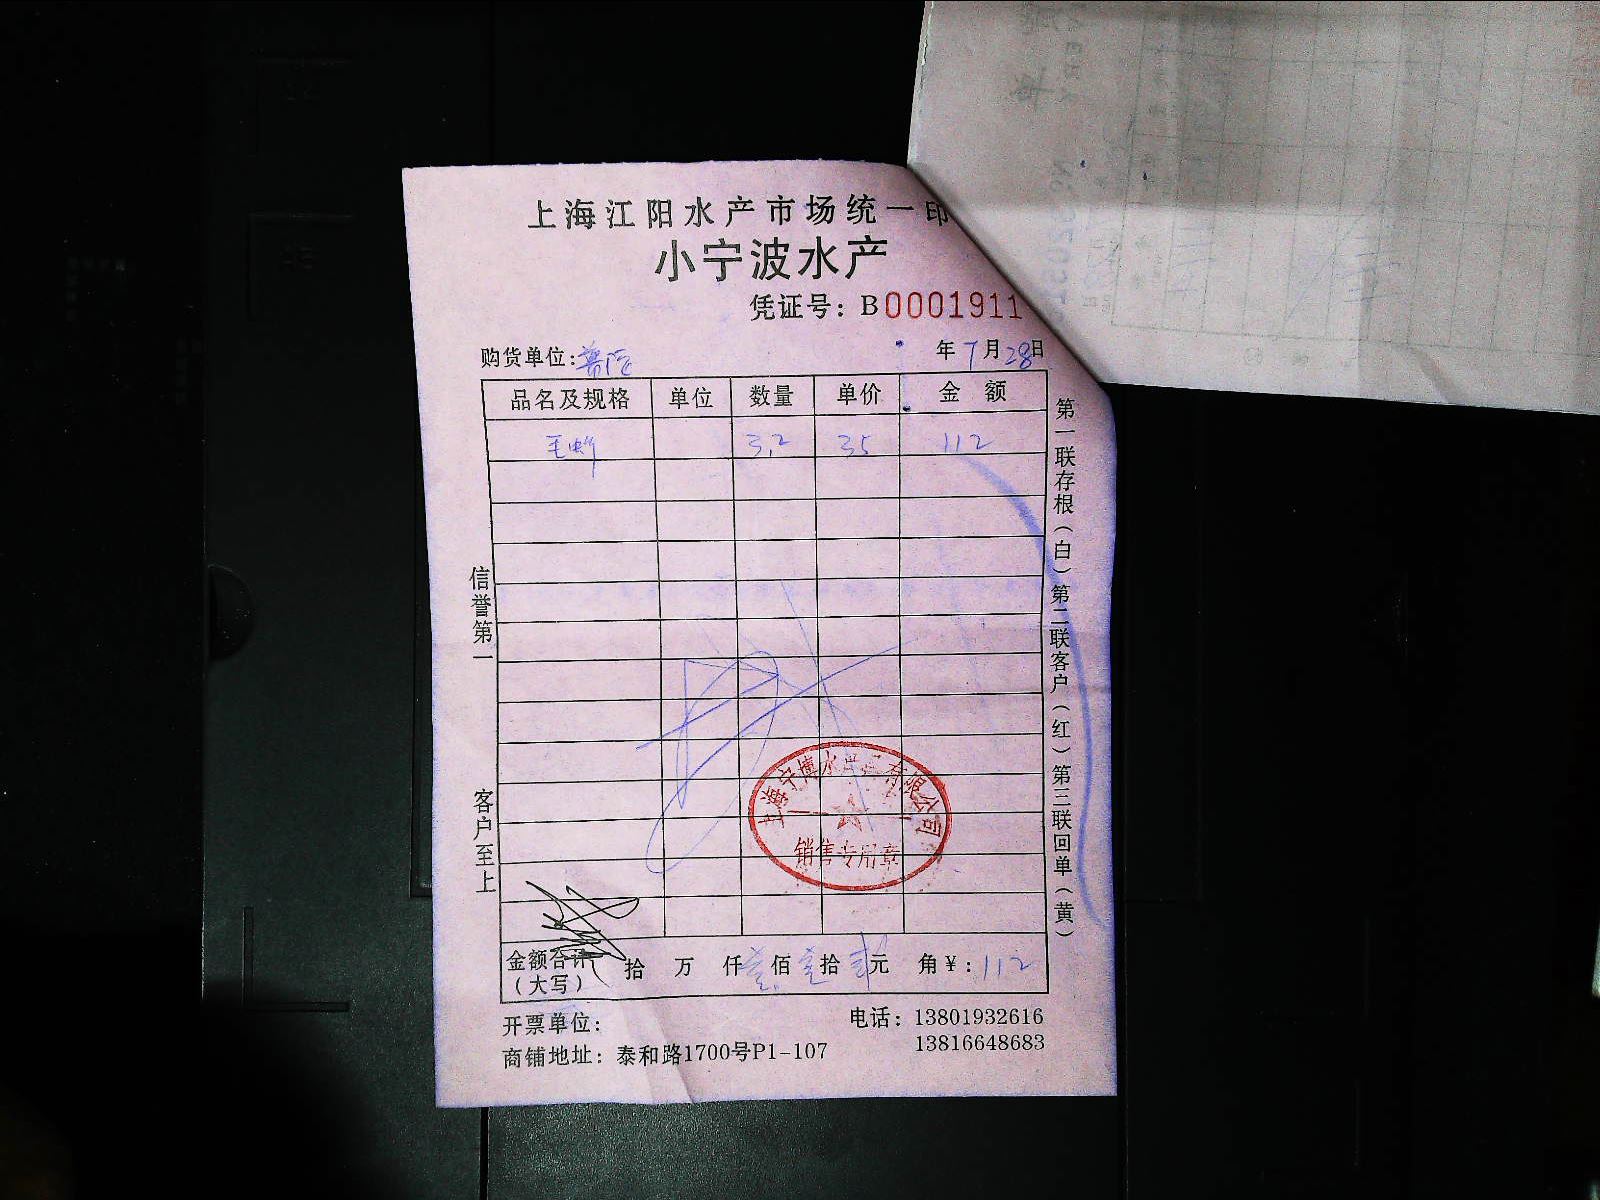 上海江阳水产市场统一印
小宁波水产
凭证号：B0001911
购货单位：
年7月28日
品名及规格 单位 数量 单价 金 额
3.2 35 112
信誉第一
客户至上
第一联存根（白）第二联客户（红）第三联回单（黄）
上海宁博水产品有限公司
销售专用章
金额合计 拾 万 仟壹佰壹拾贰元 角￥：112
（大写）
开票单位：
电话：13801932616
13816648683
商铺地址：泰和路1700号P1-107